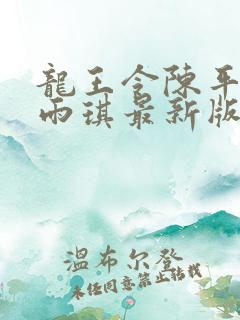 龍王令陳平
雨琪最新版
溫布尔登
未经同意禁止转载